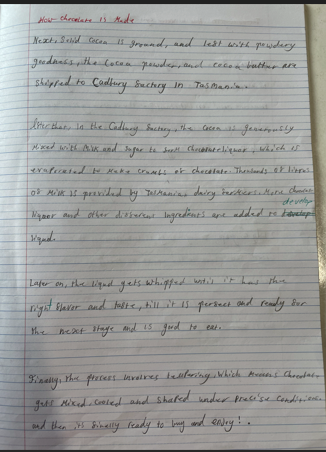 How chocolate is Made
Next, Solid Cocoa is ground, and left with powdary
goodness, the Cocoa powder, and cocoa butter are
shipped to Cadbury factory in Tasmania.
further, in the Cadbury factory, the Cocoa is generously
Mixed with Milk and Sugar to form Chocolate liquor, which is
evaporated to Make crumbs of chocolate. Thousands of litres
of Milk is provided by Tasmania, dairy farmers. More Chocolate
develop
liquor and other different Ingredients are added to
liqud.
Later on, the liqud gets whipped until it has the
right flavor and taste, till it is perfect and ready for
the next stage and is good to eat.
Finally, the process involves tempering, which Means Chocolate
gets Mixed, cooled and shaped under precise Condition.
and then its finally ready to buy and enjoy! .